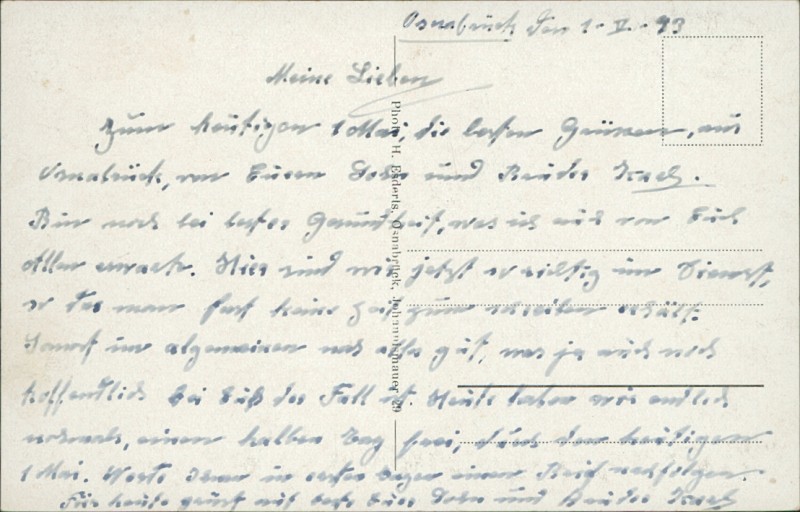 Osnabrück den 1. V. 43
Meine Lieben
Zum heutigen 1 Mai, die besten Grüssen, aus
Osnabrück, von Euren Sohn und Bruder
Bin noch bei bester Gesundheit, was ich auch von Euch
Allen erwarte. Hier sind wir jetzt so richtig im Dienst,
so das man fast keine Zeit zum schreiben erhält.
Sonst im algemeinen noch alles gut, was ja auch noch
hoffentlich bei Euch der Fall ist. Heute haben wir endlich
nochmals, einen halben Tag frei, durch den heutigen
1 Mai. Werde in ersten Tagen einen Brief nachfolgen.
Für heute grüsst auf beste Euer Sohn und Bruder
Photo H. Osnabrück,